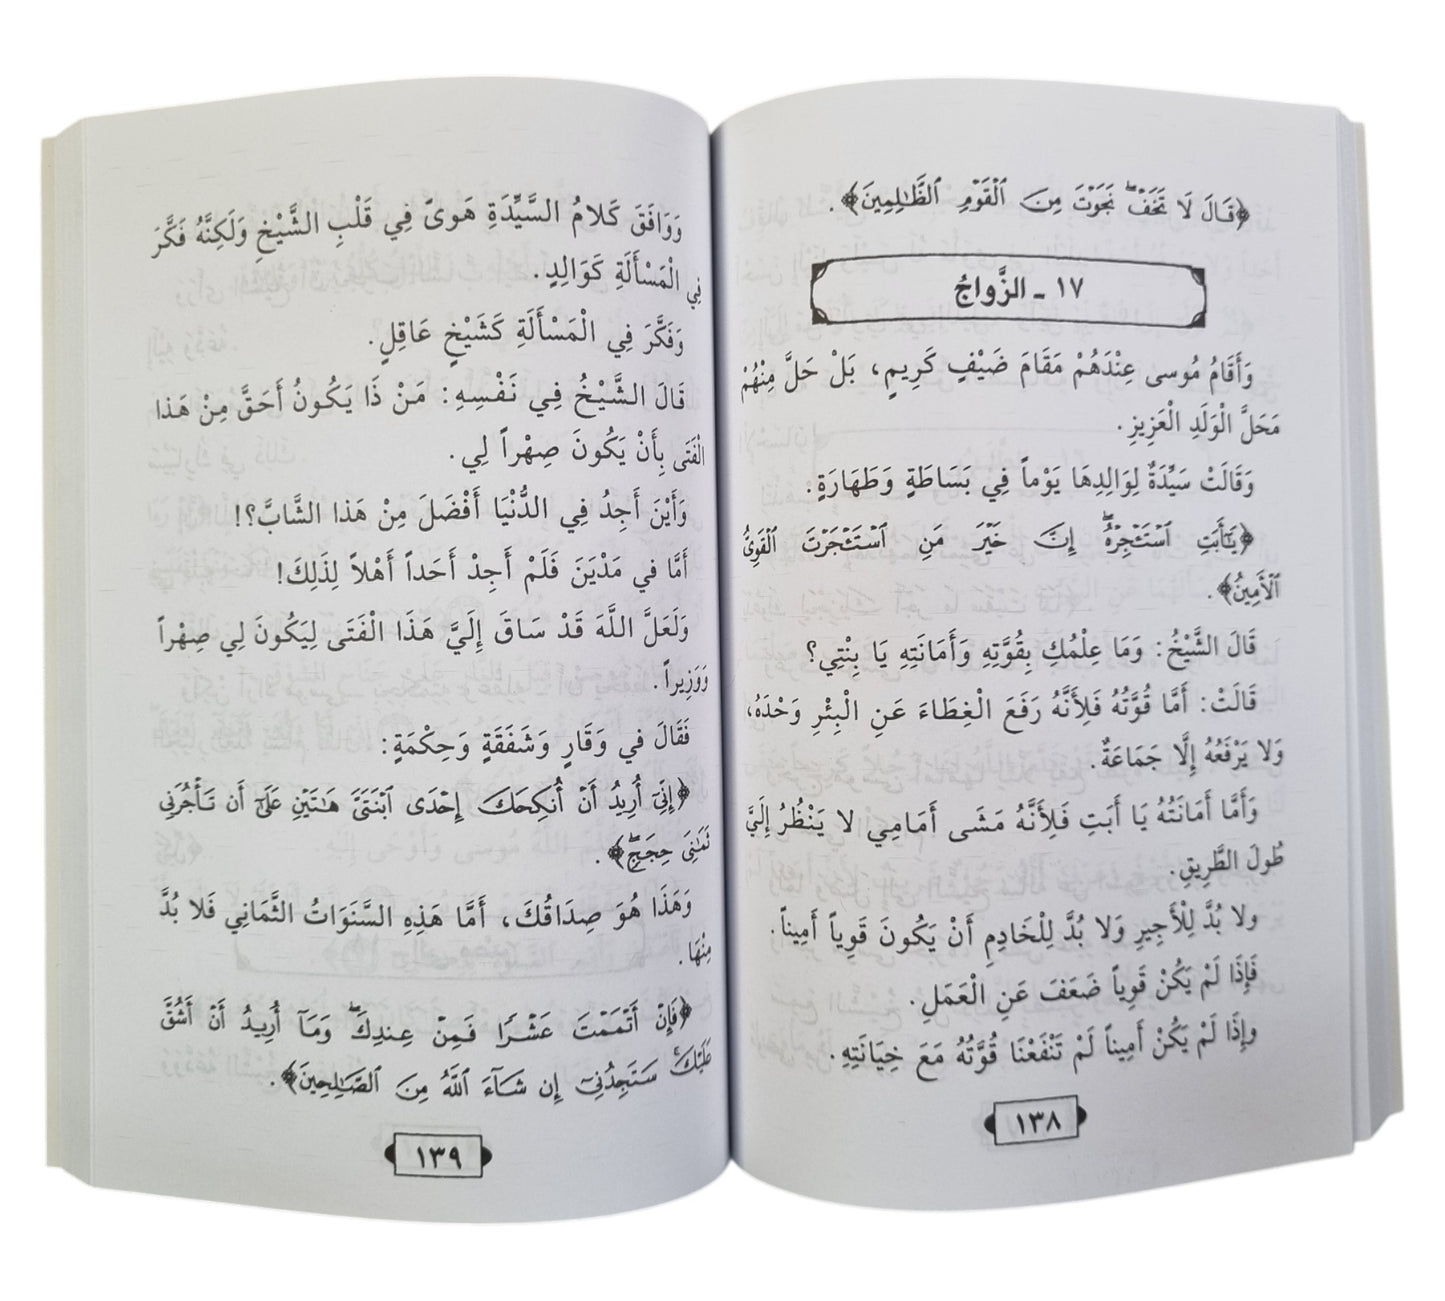 ﴿قَالَ لَا تَخَفْ ۖ نَجَوْتَ مِنَ ٱلْقَوْمِ ٱلظَّـٰلِمِينَ﴾ .
١٧ ـ الزَّواجُ
وَأَقَامُ مُوسى عِنْدَهُمْ مَقَامَ ضَيْفٍ كَرِيمٍ، بَلْ حَلَّ مِنْهُمْ
مَحَلَّ الْوَلَدِ الْعَزِيزِ .
وَقَالَتْ سَيِّدَةٌ لِوَالِدِهَا يَوْماً فِي بَسَاطَةٍ وَطَهَارَةٍ.
﴿يَـٰٓأَبَتِ ٱسْتَـْٔجِرْهُ ۖ إِنَّ خَيْرَ مَنِ ٱسْتَـْٔجَرْتَ ٱلْقَوِىُّ
ٱلْأَمِينُ﴾ .
قَالَ الشَّيْخُ: وَمَا عِلْمُكِ بِقُوَّتِهِ وَأَمَانَتِهِ يَا بِنْتِي؟
قَالَتْ: أَمَّا قُوَّتُهُ فَلِأَنَّهُ رَفَعَ الْغِطَاءَ عَنِ الْبِئْرِ وَحْدَهُ،
وَلا يَرْفَعُهُ إِلَّا جَمَاعَةٌ .
وَأَمَّا أَمَانَتُهُ يَا أَبَتِ فَلِأَنَّهُ مَشَى أَمَامِي لا يَنْظُرُ إِلَيَّ
طُولَ الطَّرِيقِ.
ولا بُدَّ لِلْأَجِيرِ وَلا بُدَّ لِلْخَادِمِ أَنْ يَكُونَ قَوِياً أَمِيناً.
فَإِذَا لَمْ يَكُنْ قَوِياً ضَعَفَ عَنِ الْعَمَلِ .
وإِذَا لَمْ يَكُنْ أَمِيناً لَمْ تَنْفَعْنَا قُوَّتُهُ مَعَ خِيَانَتِهِ.
١٣٨
وَوَافَقَ كَلامُ السَّيِّدَةِ هَوىً فِي قَلْبِ الشَّيْخِ وَلَكِنَّهُ فَكَّرَ
فِي الْمَسْأَلَةِ كَوَالِدٍ.
وَفَكَّرَ فِي الْمَسْأَلَةِ كَشَيْخٍ عَاقِلٍ.
قَالَ الشَّيْخُ فِي نَفْسِهِ: مَنْ ذَا يَكُونُ أَحَقَّ مِنْ هَذا
الْفَتَى بِأَنْ يَكُونَ صِهْراً لِي.
وَأَيْنَ أَجِدُ فِي الدُّنْيَا أَفْضَلَ مِنْ هَذا الشَّابَّ؟!
أَمَّا في مَدْيَنَ فَلَمْ أَجِدْ أَحَداً أَهْلاً لِذَلِكَ!
وَلَعَلَّ اللَّهَ قَدْ سَاقَ إِلَيَّ هَذَا الْفَتَى لِيَكُونَ لِي صِهْراً
وَوَزِيراً.
فَقَالَ في وَقَارٍ وَشَفَقَةٍ وَحِكْمَةٍ:
﴿إِنِّىٓ أُرِيدُ أَنْ أُنكِحَكَ إِحْدَى ٱبْنَتَىَّ هَـٰتَيْنِ عَلَىٰٓ أَن تَأْجُرَنِى
ثَمَـٰنِىَ حِجَجٍ ۖ﴾ .
وَهَذَا هُوَ صِدَاقُكَ، أَمَّا هَذِهِ السَّنَوَاتُ الثَّمَانِي فَلا بُدَّ
مِنْهَا .
﴿فَإِنْ أَتْمَمْتَ عَشْرًا فَمِنْ عِندِكَ ۖ وَمَآ أُرِيدُ أَنْ أَشُقَّ
عَلَيْكَ ۚ سَتَجِدُنِىٓ إِن شَآءَ ٱللَّهُ مِنَ ٱلصَّـٰلِحِينَ﴾ .
١٣٩